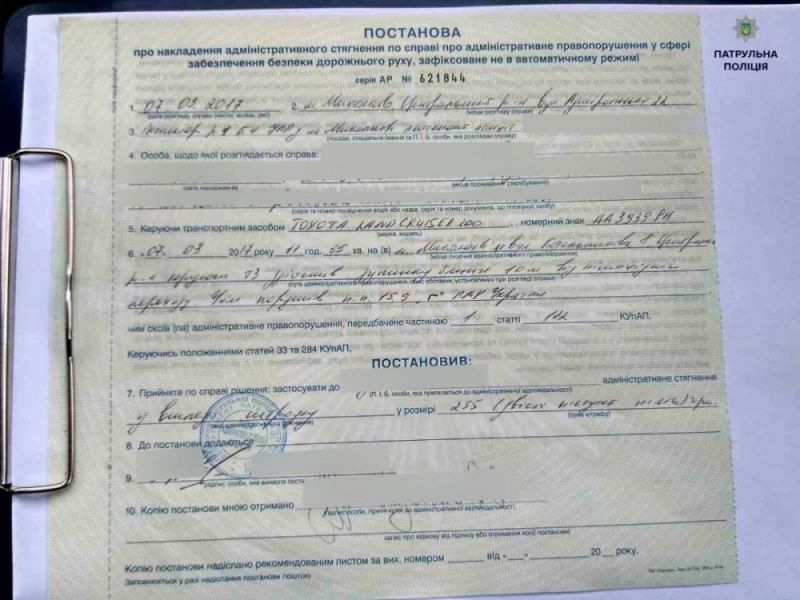 ПАТРУЛЬНА
ПОЛІЦІЯ
ПОСТАНОВА
про накладення адміністративного стягнення по справі про адміністративне правопорушення у сфері
забезпечення безпеки дорожнього руху, зафіксоване не в автоматичному режимі
серія АР № 621844
1. 07 03 2017 2. м Миколаїв Центральний р-н вул
(дата розгляду справи (число, місяць, рік) (місце розгляду справи)
3. Інспектор
(посада, спеціальне звання та П. І. Б. особи, яка розглядає справу)
4. Особа, щодо якої розглядається справа:
(дата народження) (місце проживання (перебування)
(серія та номер посвідчення водія або назва, серія та номер документа, що посвідчує особу)
5. Керуючи транспортним засобом TOYOTA LAND CRUISER 200, номерний знак АА3939
(марка, модель)
6. 07. 03 2017 року 11 год. 55 хв. на (в) м. Миколаїв
(місце скоєння адміністративного правопорушення)
р-н керуючи ТЗ здійснив зупинку ближче 10 м від пішохідного
(суть адміністративного правопорушення, опис обставин, установлених при розгляді справи)
переходу чим порушив п.п 15.9. г ПДР України
чим скоїв (ла) адміністративне правопорушення, передбачене частиною 1 статті 122 КУпАП.
Керуючись положеннями статей 33 та 284 КУпАП,
ПОСТАНОВИВ:
7. Прийняте по справі рішення: застосувати до адміністративне стягнення
(П. І. Б. особи, яка притягається до адміністративної відповідальності)
у вигляді штрафу у розмірі 255 (двісті пістдесят п'ять) грн.
(вид адміністративного стягнення) (сума штрафу)
8. До постанови додаються
9.
(підпис особи, яка винесла постанову)
10. Копію постанови мною отримано
(підпис особи, яка притягається до адміністративної відповідальності,
запис про відмову від підпису або отримання копії постанови)
Копію постанови надіслано рекомендованим листом за вих. номером від «» 20 року.
Заповнюється у разі надіслання постанови поштою